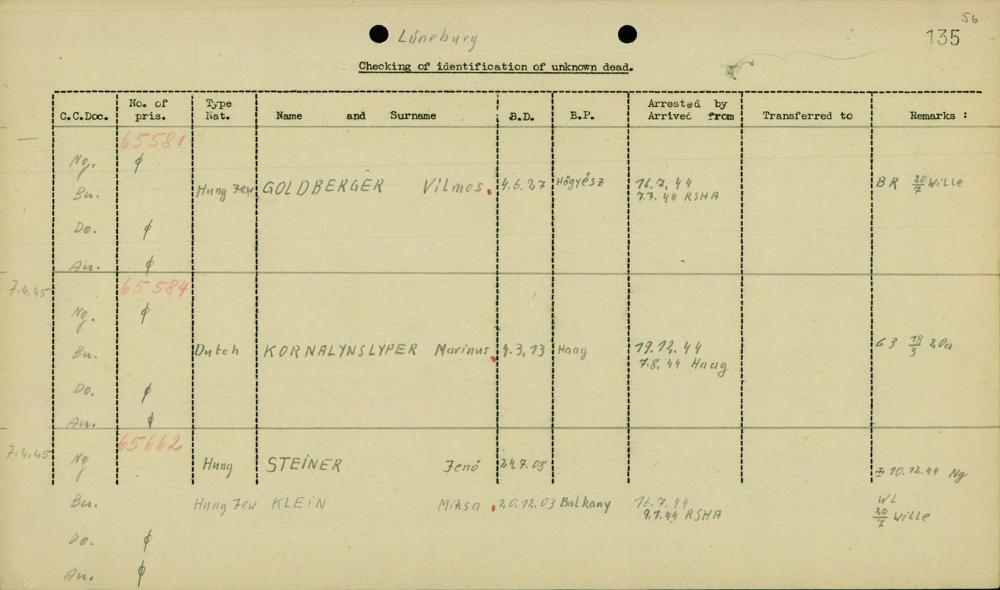 56
Lüneburg 135
Checking of identification of unknown dead.
C.C.Doc. No. of pris. Type Nat. Name and Surname B.D. B.P. Arrested by Arrived from Transferred to Remarks :
65581
Ng. ϕ
Bu. Hung Jew GOLDBERGER Vilmos. 4.6.27 Högyész 16.7.44 BR 20/7 Wille
7.7.44 RSHA
Do. ϕ
Au. ϕ
7.4.45 65584
Ng. ϕ
Bu. Dutch KORNALYNSLYPER Marinus. 4.3.13 Haag 19.12.44 G3 18/3 20a
7.8.44 Haag
Do. ϕ
Au. ϕ
7.4.45 65662
Ng Hung STEINER Jenö 24.7.08 ± 10.12.44 Ng
Bu. Hung Jew KLEIN Miksa. 20.12.03 Balkany 16.7.44 WL
9.7.44 RSHA 20/7 Wille
Do. ϕ
Au. ϕ